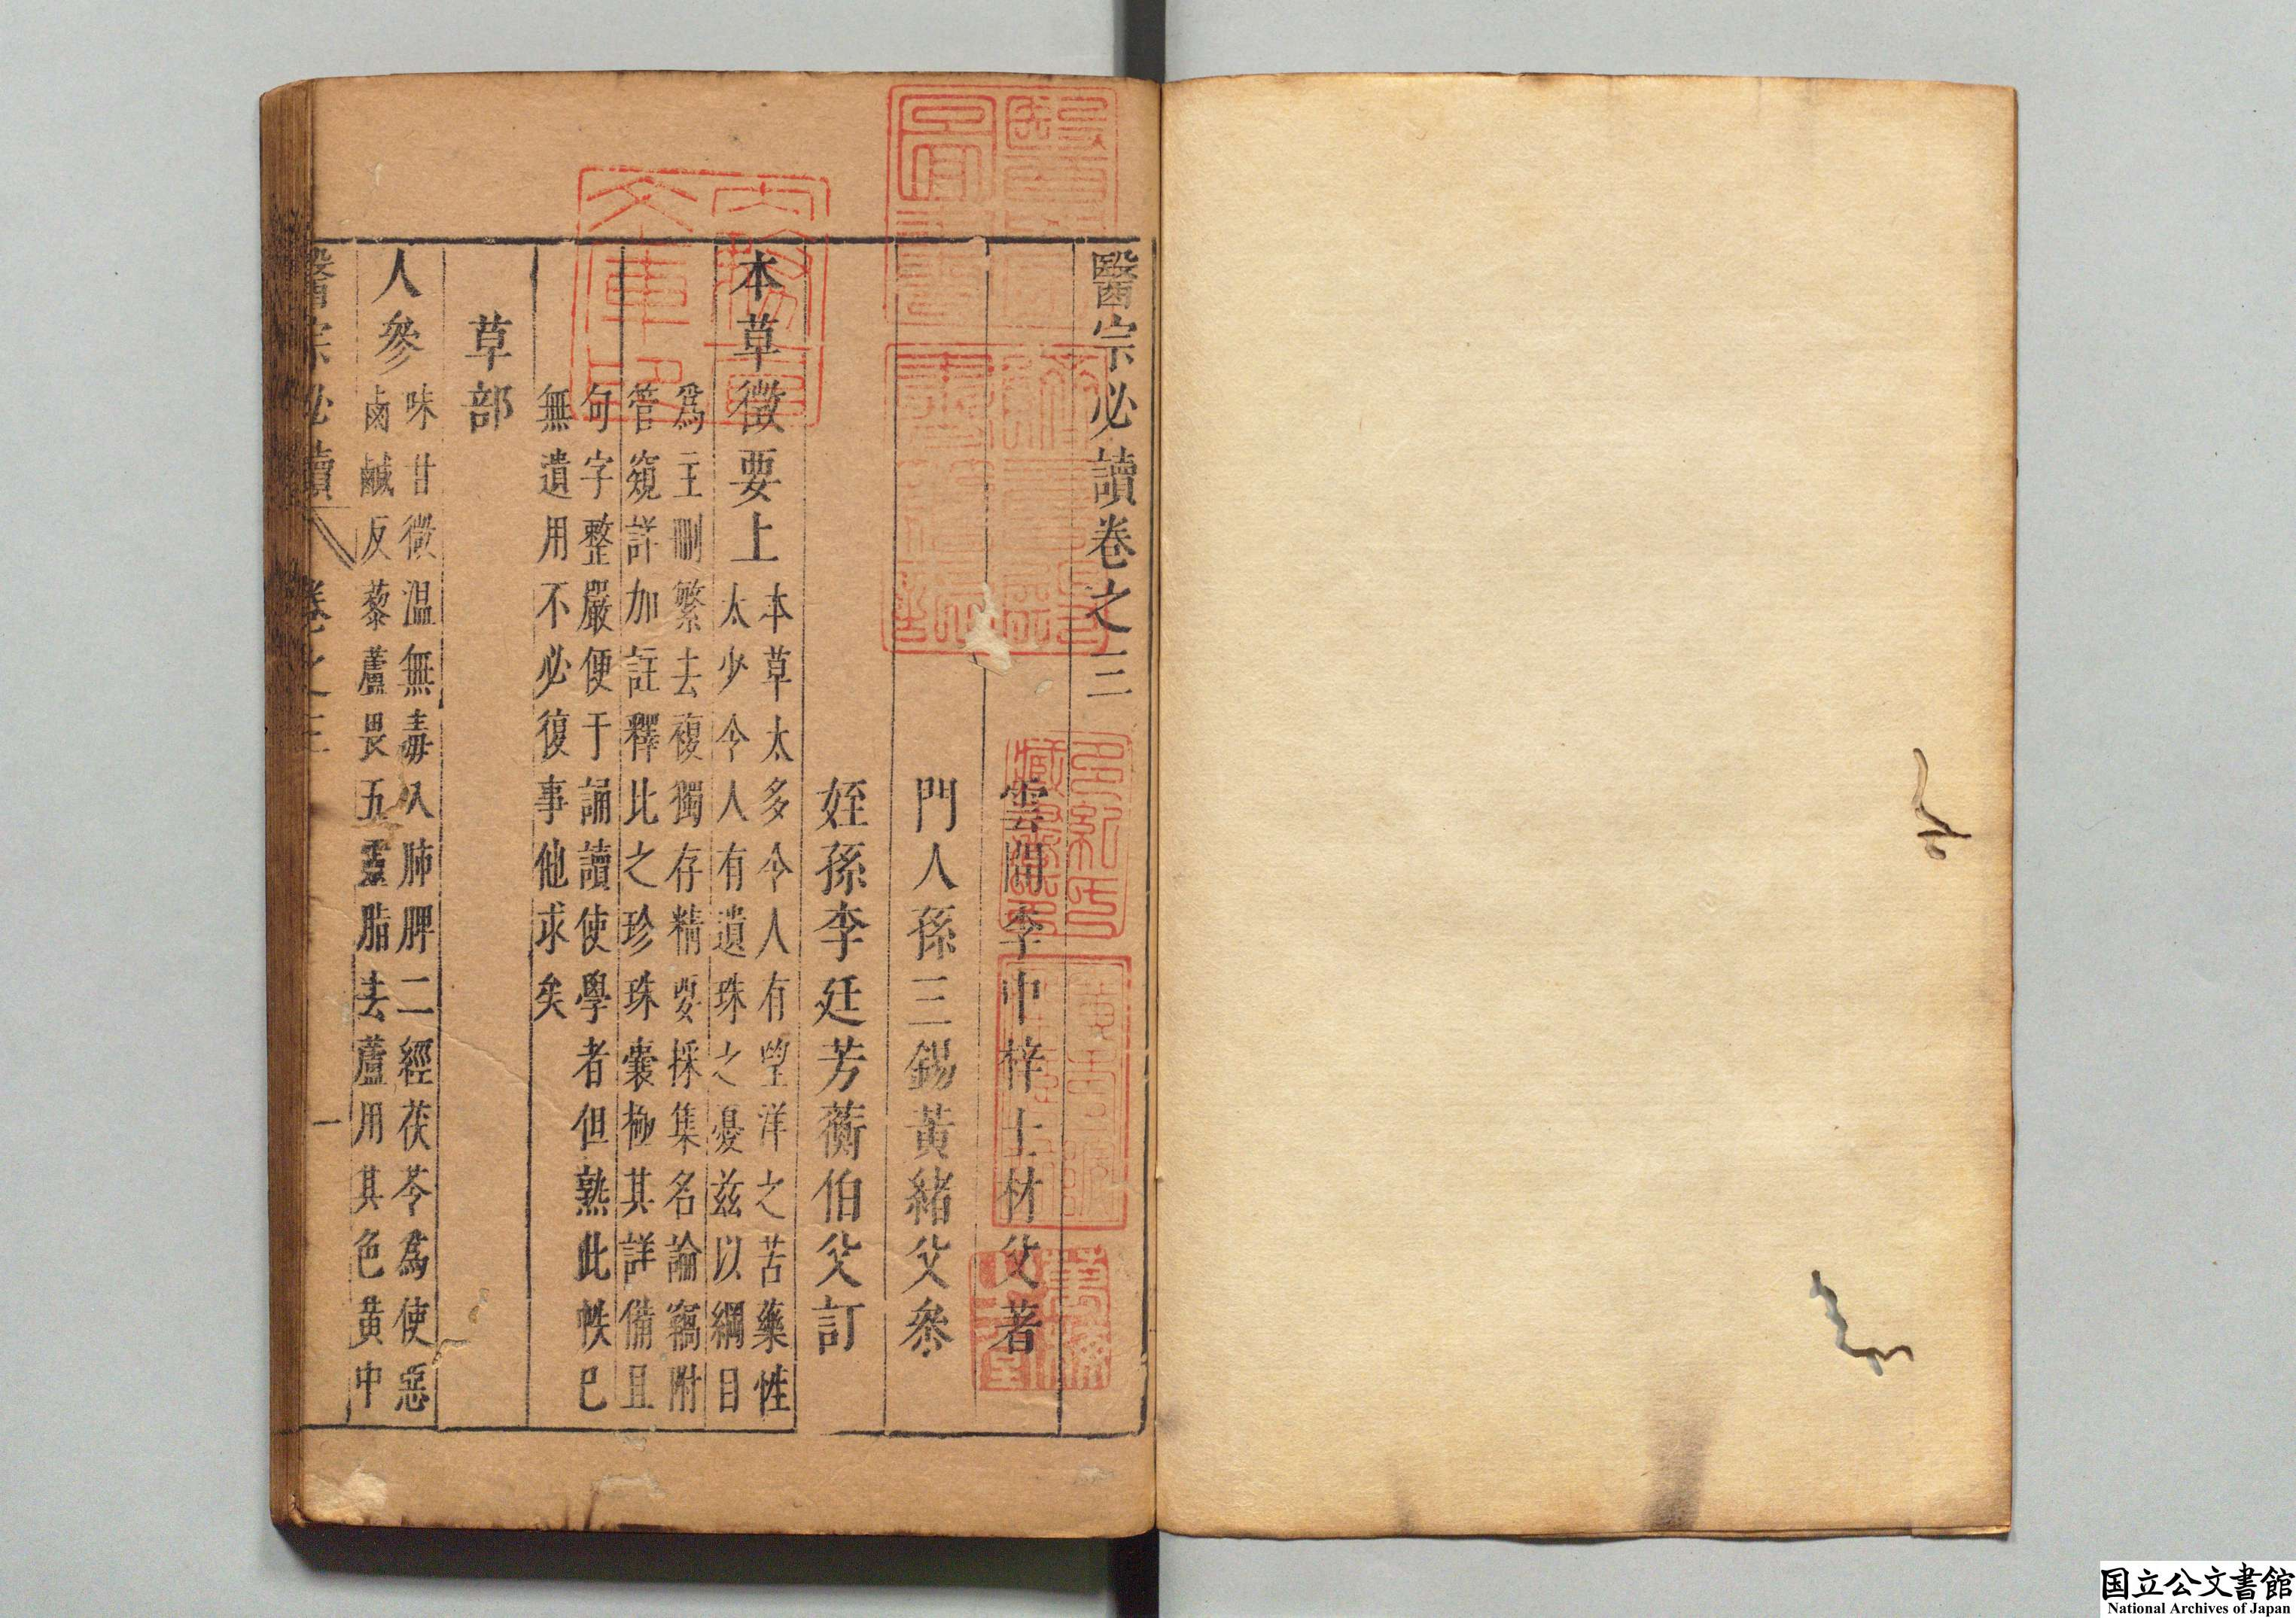 醫宗必讀卷之三
雲間李中梓士材父著
門人孫三錫黃緒父參
姪孫李廷芳蘅伯父訂
本草徵要上
本草太多令人有望洋之苦藥性
太少令人有遺珠之憂茲以綱目
為主刪繁去複獨存精要採集名論竊附
管窺詳加註釋比之珍珠囊極其詳備且
句字整嚴便于誦讀使學者但熟此帙已
無遺用不必復事他求矣
草部
人參
味甘微溫無毒入肺脾二經茯苓為使惡
鹵鹹反藜蘆畏五靈脂去蘆用其色黃中
醫宗必讀
卷之三
一
多紀氏藏書印
国立公文書館
National Archives of Japan